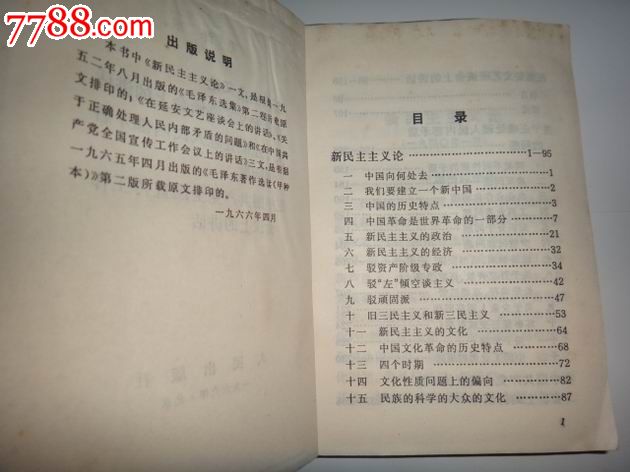 7788.com
出版说明
本书中《新民主主义论》一文,是根据一九
五二年八月出版的《毛泽东选集》第二卷所载原
文排印的;《在延安文艺座谈会上的讲话》、《关
于正确处理人民内部矛盾的问题》和《在中国共
产党全国宣传工作会议上的讲话》三文,是根据
一九六五年四月出版的《毛泽东著作选读(甲种
本)》第二版所载原文排印的。
一九六六年四月
人民出版社
目录
新民主主义论……1—95
一 中国向何处去……1
二 我们要建立一个新中国……2
三 中国的历史特点……3
四 中国革命是世界革命的一部分……7
五 新民主主义的政治……21
六 新民主主义的经济……32
七 驳资产阶级专政……34
八 驳“左”倾空谈主义……42
九 驳顽固派……47
十 旧三民主义和新三民主义……53
十一 新民主主义的文化……64
十二 中国文化革命的历史特点……68
十三 四个时期……72
十四 文化性质问题上的偏向……82
十五 民族的科学的大众的文化……87
1